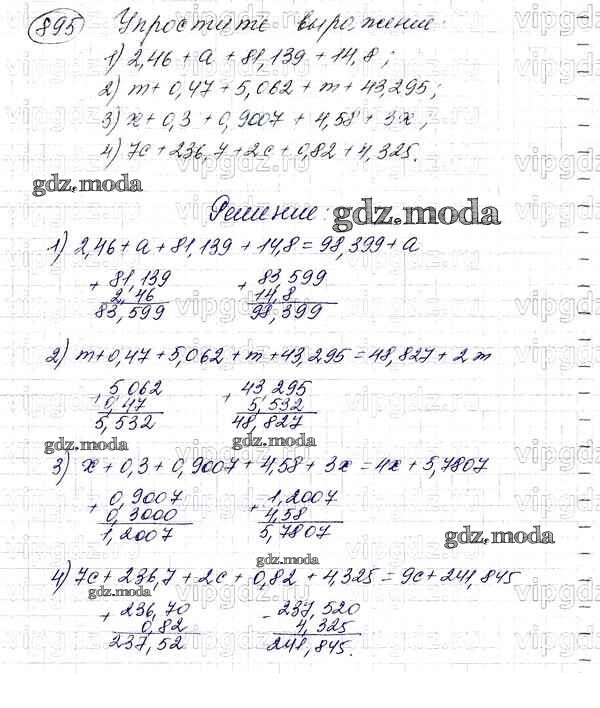 895 Упростите выражение:
1) 2,46 + a + 81,139 + 14,8;
2) m + 0,47 + 5,062 + m + 43,295;
3) x + 0,3 + 0,9007 + 4,58 + 3x;
4) 7c + 236,7 + 2c + 0,82 + 4,325.
gdz.moda
Решение: gdz.moda
1) 2,46 + a + 81,139 + 14,8 = 98,399 + a
+ 81,139 + 83,599
2,46 14,8
83,599 98,399
2) m + 0,47 + 5,062 + m + 43,295 = 48,827 + 2m
+ 5,062 + 43,295
0,47 5,532
5,532 48,827
gdz.moda gdz.moda
3) x + 0,3 + 0,9007 + 4,58 + 3x = 4x + 5,7807
+ 0,9007 + 1,2007
0,3000 4,58
1,2007 5,7807
gdz.moda
gdz.moda
4) 7c + 236,7 + 2c + 0,82 + 4,325 = 9c + 241,845
gdz.moda
+ 236,70 - 237,520
0,82 4,325
237,52 241,845.